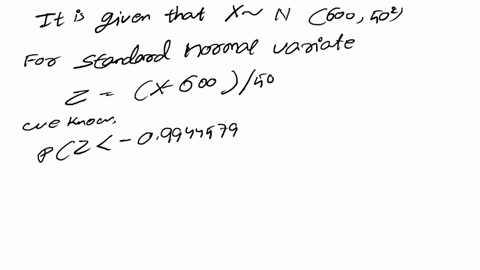 It is given that X~ N (600, 50²)
For standard normal variate
Z = (X-600)/50
we know,
P(Z < - 0.9944579